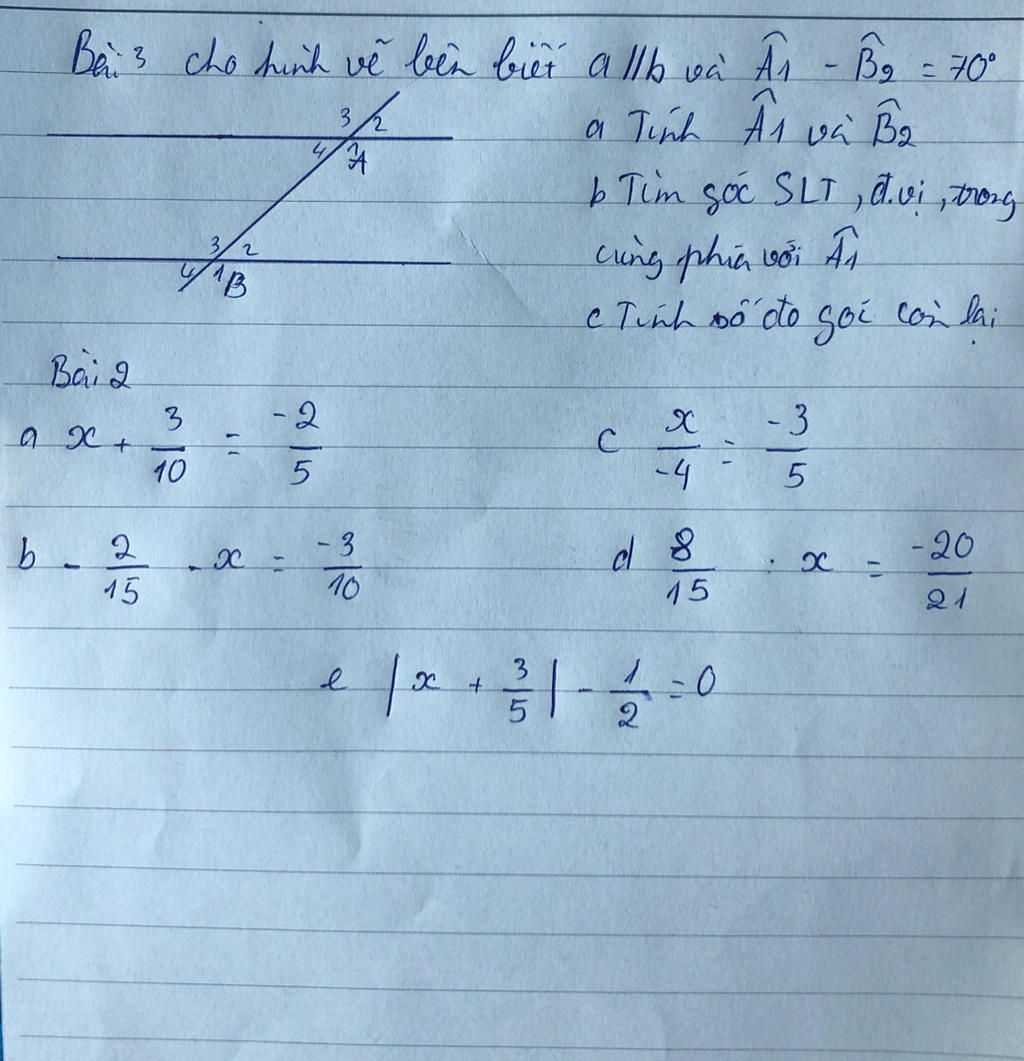 Bài 3 cho hình vẽ bên biết a // b và Â1 - B̂2 = 70°
a Tính Â1 và B̂2
b Tìm góc SLT, đ.vị, trong
cùng phía với Â1
c Tính số đo goí còn lại
3 2
4 1 A
3 2
4 1 B
Bài 2
a x + 3/10 = -2/5
c x/-4 = -3/5
b - 2/15 - x = -3/10
d 8/15 : x = -20/21
e |x + 3/5| - 1/2 = 0